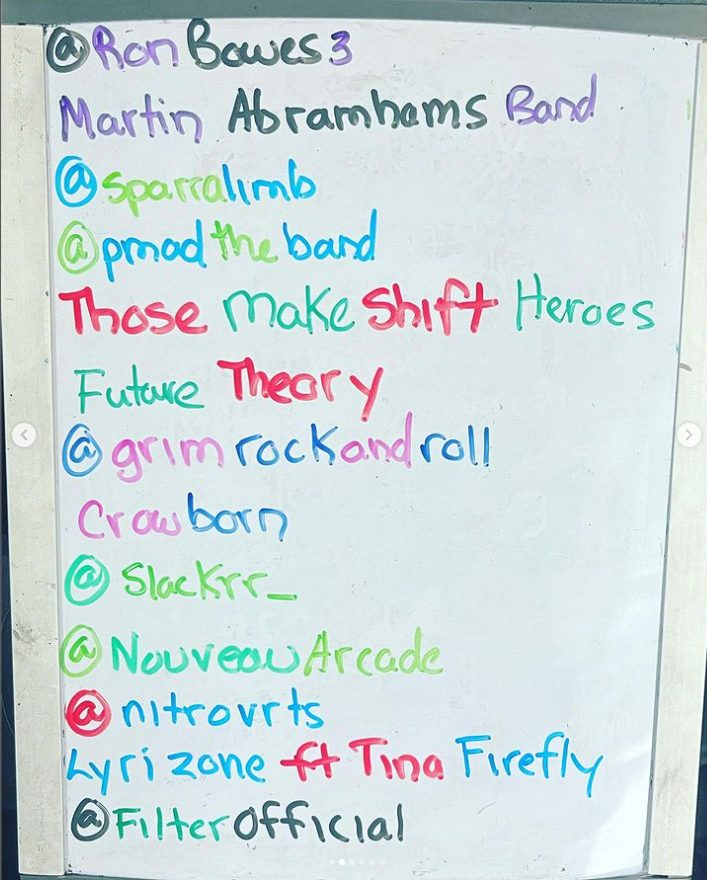 @RonBowes3
Martin Abramhams Band
@sparralimb
@pmadtheband
Those Make Shift Heroes
Future Theory
@grimrockandroll
Crowborn
@Slackrr_
@NouveauArcade
@nitrovrts
Lyrizone ft Tina Firefly
@FilterOfficial